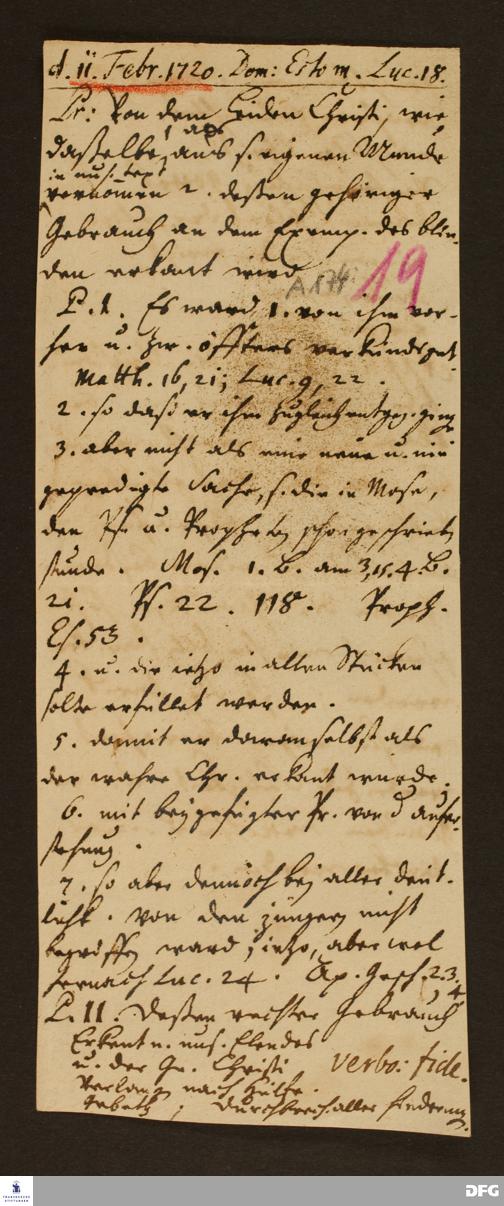 d. 11. Febr. 1720. Dom: Esto m. Luc. 18.
Pr: Von dem Leiden Christi, wie
daßelbe, aus s. eigenen Munde
in uns. text
vernomen 2. deßen gehöriger
Gebrauch an dem Exemp. des blin-
den erkant wird
A 174 19
P. 1. Es ward 1. von ihm vor-
her u. zw. öffters verkündiget
Matth. 16, 21; Luc. 9, 22.
2. so daß er ihm zugleich entgeg. ging
3. aber nicht als eine neue u. nie
gepredigte Sache, s. die in Mose,
den Ps. u. Propheten schon geschrieben
stunde. Mos. 1. B. am 3, 15. 4. B.
21. Ps. 22. 118. Proph.
Es. 53.
4. u. die ietzo in allen Stücken
solte erfüllet werden.
5. damit er daran selbst als
der wahre Chr. erkant wurde.
6. mit beygefügter Pr. von d aufer-
stehung.
7. so aber dennoch bey aller deut-
lichk. von den jüngern nicht
begriffen ward, ietzo, aber wol
hernach Luc. 24. Ap. Gesch. 2. 3.
4
P. II. Deßen rechter Gebrauch
Erkent n. uns. Elendes
u. der Gn. Christi verbo: fide.
Verlangen nach Hülfe.
Gebeth, Durchbrech. aller hinderung.
FRANCKESCHE STIFTUNGEN
DFG